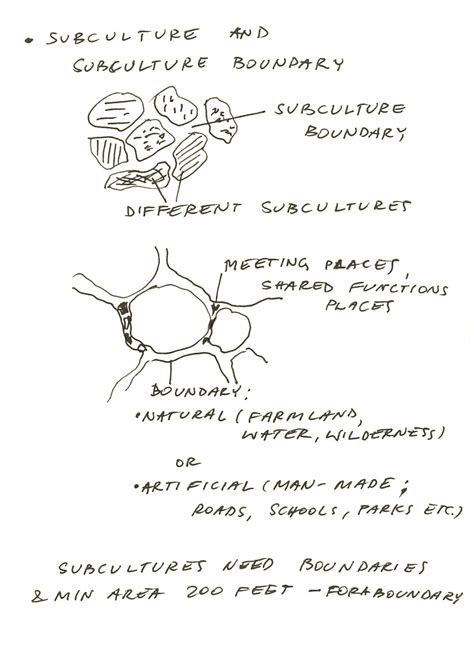 • SUBCULTURE AND
SUBCULTURE BOUNDARY
SUBCULTURE
BOUNDARY
DIFFERENT SUBCULTURES
MEETING PLACES,
SHARED FUNCTIONS
PLACES
BOUNDARY:
• NATURAL (FARMLAND,
WATER, WILDERNESS)
OR
• ARTIFICIAL (MAN-MADE;
ROADS, SCHOOLS, PARKS ETC.)
SUBCULTURES NEED BOUNDARIES
& MIN AREA 200 FEET - FOR A BOUNDARY